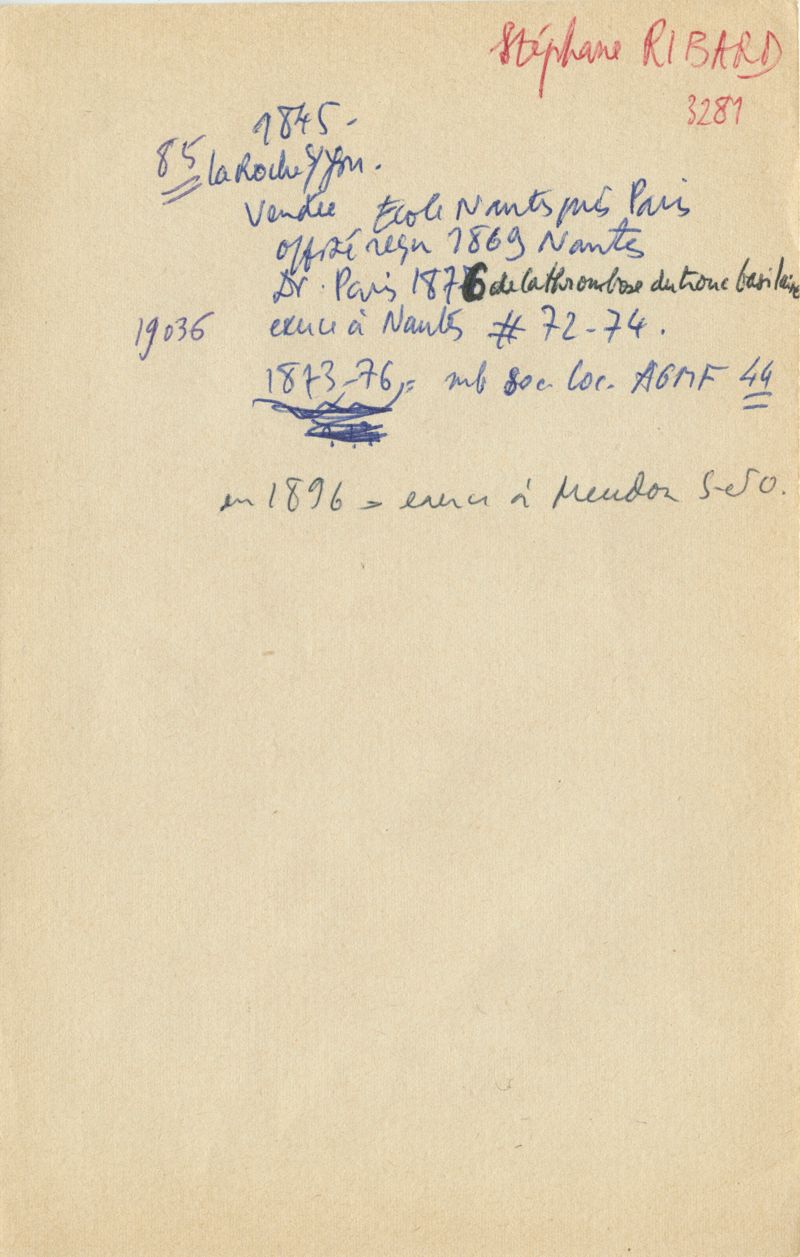 Stéphane RIBARD
3281
1845 -
85 la Roche s/Yon.
Vendée Ecole Nantes puis Paris
offizé reçu 1869 Nantes
Dr. Paris 1876 de la thrombose du tronc basilaire
19036 exerce à Nantes # 72-74.
1873-76 = mb Soc. loc. AGMF 44
en 1896 = exerce à Meudon S-et O.